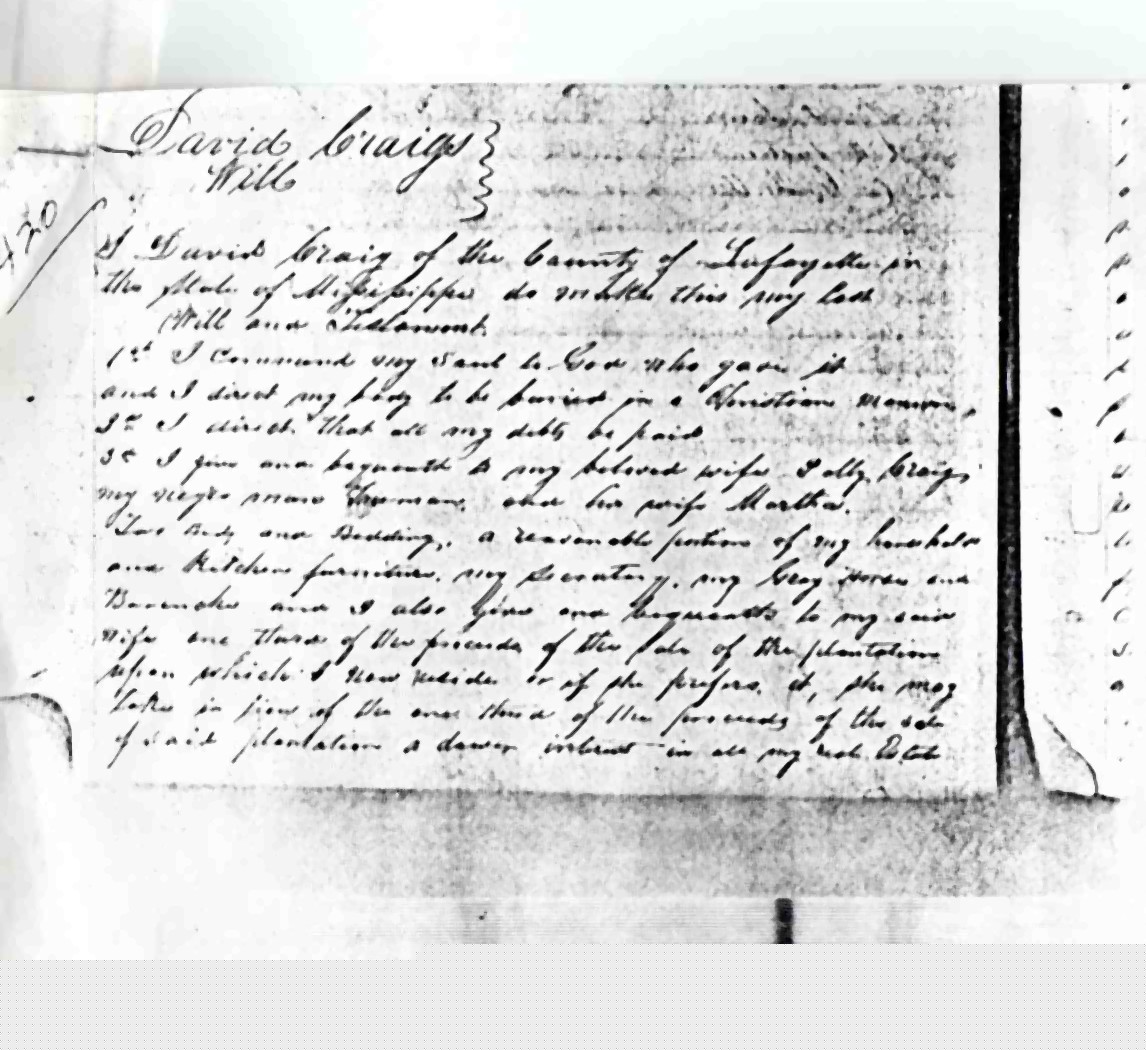 David Craigs
Will
420
I David Craig of the County of Lafayette in
the State of Missisippi do make this my last
Will and Testament.
1st I Commend my Soul to God who gave it
and I direct my body to be buried in a Christian manner,
I direct that all my debts be paid
I give and bequeath to my beloved wife Sally Craig,
my negro man and his wife Martha.
Two Beds and Bedding, a reasonable portion of my household
and Kitchen furniture, my Secretary, my Gray Horse and
Barouche and I also give and bequeath to my said
wife one third of the proceeds of the Sale of the plantation
upon which I now reside or if she prefers it, she may
take in lieu of the one third of the proceeds of the sale
of said plantation a dower interest in all my real Estate